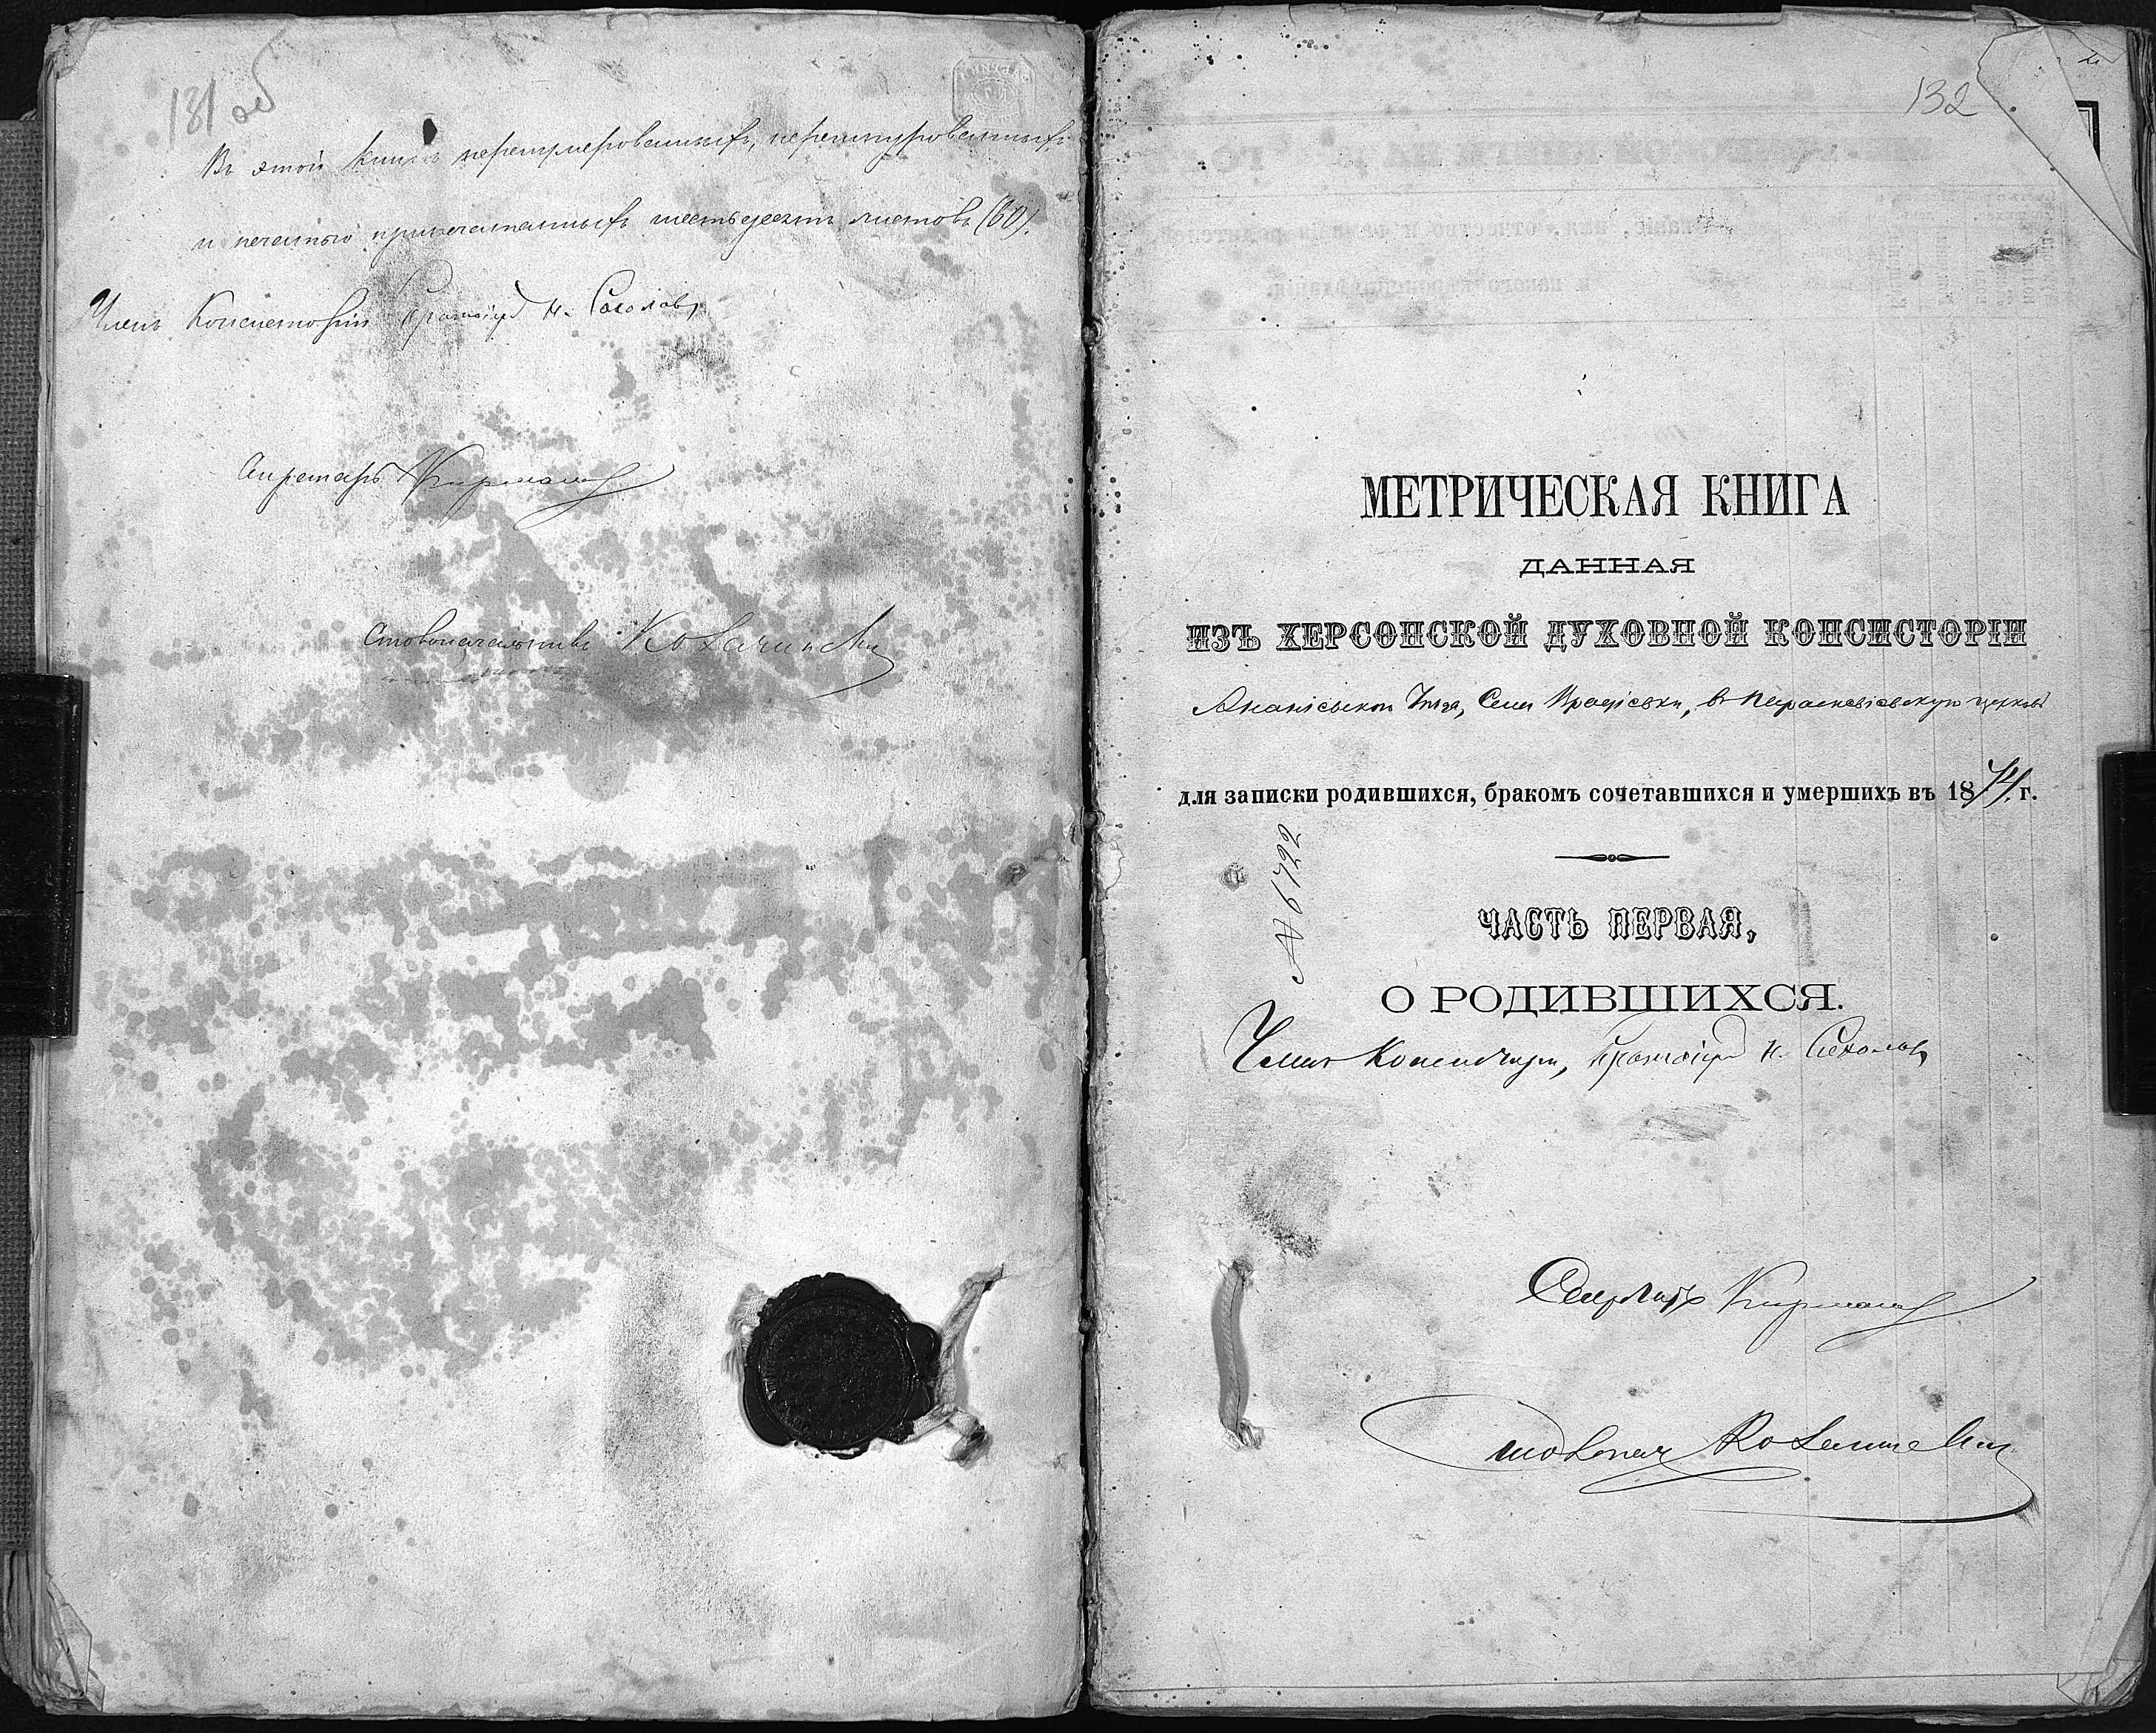 131 об
Въ этой книгѣ перенумерованныхъ, перешнурованныхъ
и печатью припечатанныхъ шестьдесятъ листовъ (60).
Членъ Консисторіи Протоіерей Н. Соколовъ
Секретарь
Столоначальникъ
132
МЕТРИЧЕСКАЯ КНИГА
ДАННАЯ
ИЗЪ ХЕРСОНСКОЙ ДУХОВНОЙ КОНСИСТОРІИ
Ананьевскаго Уѣзда, Села Врадіевки, въ Параскевіевскую церковь
для записки родившихся, бракомъ сочетавшихся и умершихъ въ 1874. г.
№ 6722
ЧАСТЬ ПЕРВАЯ,
О РОДИВШИХСЯ.
Членъ Консисторіи, Протоіерей Н. Соколовъ
Секретарь
Столонач